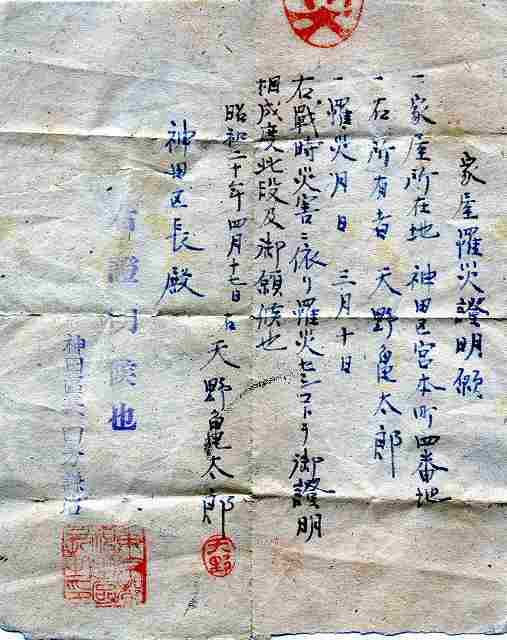 家屋罹災證明願
一家屋所在地 神田区宮本町四番地
一右所有者 天野亀太郎
一罹災月日 三月十日
右戰時災害ニ依リ罹災セシコトヲ御證明
相成度此段及御願候也
昭和二十年四月十七日 右 天野亀太郎
天野
神田区長殿
右證明候也
神田區長